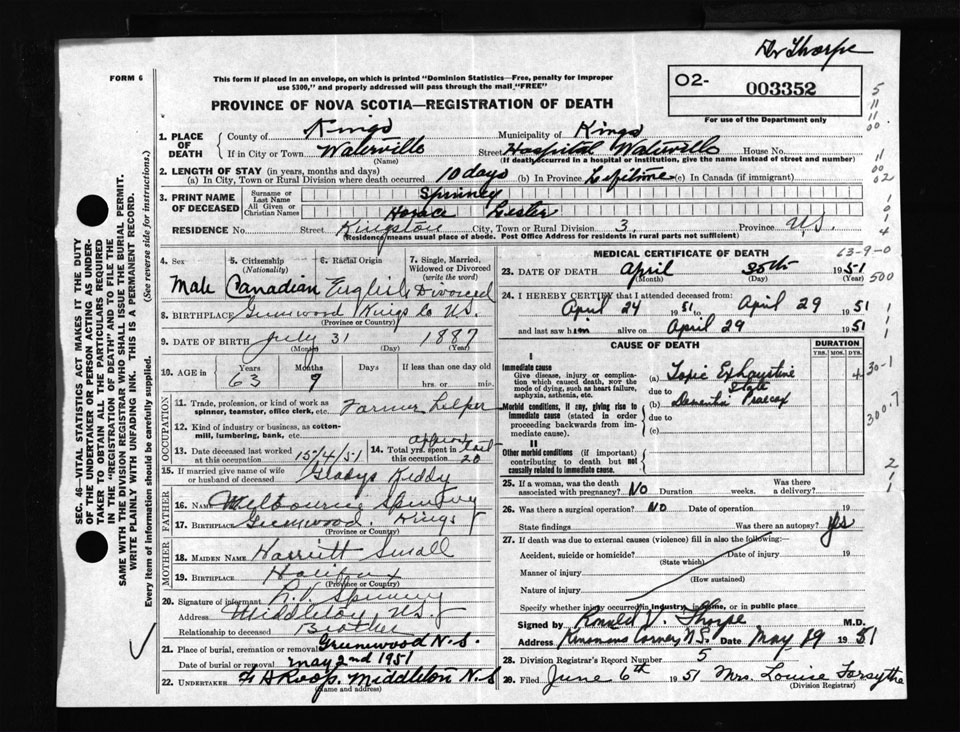 Dr Thorpe
FORM 6
This form if placed in an envelope, on which is printed "Dominion Statistics—Free, penalty for improper
use $300," and properly addressed will pass through the mail "FREE"
O2- 003352
For use of the Department only
PROVINCE OF NOVA SCOTIA—REGISTRATION OF DEATH
1. PLACE OF DEATH
County of Kings Municipality of Kings
If in City or Town Waterville Street Hospital Waterville House No.
(Name) (If death occurred in a hospital or institution, give the name instead of street and number)
2. LENGTH OF STAY (in years, months and days)
(a) In City, Town or Rural Division where death occurred 10 days (b) In Province Lifetime (c) In Canada (if immigrant)
3. PRINT NAME OF DECEASED
Surname or Last Name Spinney
All Given or Christian Names Horace Lester
RESIDENCE No. Street Kingston City, Town or Rural Division 3. Province NS.
(Residence means usual place of abode. Post Office Address for residents in rural parts not sufficient)
4. Sex 5. Citizenship (Nationality) 6. Racial Origin 7. Single, Married, Widowed or Divorced (write the word)
Male Canadian English Divorced
8. BIRTHPLACE Greenwood Kings Co NS.
(Province or Country)
9. DATE OF BIRTH July 31 1887
(Month) (Day) (Year)
10. AGE in Years Months Days If less than one day old
63 9 hrs. or min.
OCCUPATION
11. Trade, profession, or kind of work as
spinner, teamster, office clerk, etc. Farmer helper
12. Kind of industry or business, as cotton-
mill, lumbering, bank, etc.
13. Date deceased last worked at this occupation 15/4/51
14. Total yrs. spent in this occupation 20
15. If married give name of wife
or husband of deceased Gladys Reddy
FATHER
16. NAME Spinney
17. BIRTHPLACE Greenwood. Kings
(Province or Country)
MOTHER
18. MAIDEN NAME Harriett Small
19. BIRTHPLACE Halifax
(Province or Country)
20. Signature of informant Spinney
Address Middleton, NS.
Relationship to deceased Brother
21. Place of burial, cremation or removal Greenwood N.S.
Date of burial or removal May 2nd 1951
22. UNDERTAKER Roop. Middleton N.S
(Name and address)
MEDICAL CERTIFICATE OF DEATH
63-9-0
23. DATE OF DEATH April 1951
(Month) (Day) (Year)
24. I HEREBY CERTIFY that I attended deceased from:
April 24 1951 to April 29 1951
and last saw him alive on April 29 1951
CAUSE OF DEATH
DURATION
YRS. MOS. DYS.
I
Immediate cause
Give disease, injury or complica-
tion which caused death, NOT the
mode of dying, such as heart failure,
asphyxia, asthenia, etc.
(a) Toxic Exhaustive State
due to
Morbid conditions, if any, giving rise to
immediate cause (stated in order
proceeding backwards from im-
mediate cause).
(b) Dementia Praecox
due to
(c)
II
Other morbid conditions (if important)
contributing to death but not
causally related to immediate cause.
25. If a woman, was the death
associated with pregnancy? No Duration weeks. Was there a delivery?
26. Was there a surgical operation? No Date of operation 19
State findings Was there an autopsy? Yes
27. If death was due to external causes (violence) fill in also the following:—
Accident, suicide or homicide? Date of injury 19
(State which)
Manner of injury
(How sustained)
Nature of injury
Specify whether injury occurred in industry, in home, or in public place
Signed by Ronald V. Thorpe M.D.
Address Kinsmans Corner, N.S. Date May 19 1951
28. Division Registrar's Record Number 5
29. Filed June 6th 1951 Mrs. Louise Forsythe
(Division Registrar)
SEC. 46—VITAL STATISTICS ACT MAKES IT THE DUTY
OF THE UNDERTAKER OR PERSON ACTING AS UNDER-
TAKER TO OBTAIN ALL THE PARTICULARS REQUIRED
IN THE "REGISTRATION OF DEATH" AND TO FILE THE
SAME WITH THE DIVISION REGISTRAR WHO SHALL ISSUE THE BURIAL PERMIT.
WRITE PLAINLY WITH UNFADING INK. THIS IS A PERMANENT RECORD.
Every item of information should be carefully supplied. (See reverse side for instructions.)
500
30-1
300.7